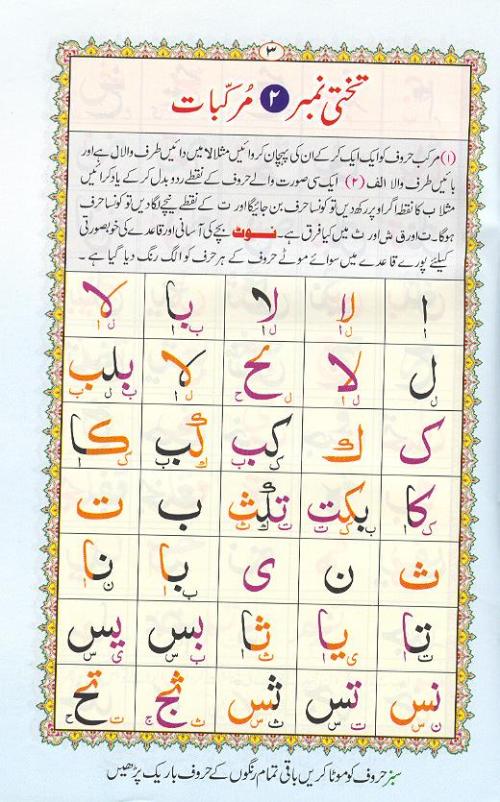 ۳
تختی نمبر ۲ مرکّبات
(۱) مرکب حروف کو ایک ایک کر کے ان کی پہچان کروائیں مثلا لا میں دائیں طرف والا ل ہے اور
بائیں طرف والا الف (۲) ایک سی صورت والے حروف کے نقطے ردو بدل کر کے یاد کرائیں
مثلا ب کا نقطہ اگر اوپر رکھ دیں تو کونسا حرف بن جائیگا اور ت کے نقطے نیچے لگا دیں تو کونسا حرف
ہوگا۔ ت اور ق ش اور ث میں کیا فرق ہے۔ نوٹ بچے کی آسانی اور قاعدے کی خوبصورتی
کیلئے پورے قاعدے میں سوائے موٹے حروف کے ہر حرف کو الگ رنگ دیا گیا ہے۔
ا لا لا با لا
ا ل ا ل ا ب ا ل ا
ل لا لح لا بلب
ل ل ا ل ح ل ا ب ل ب
ک ك كب كب كا
ک ب ك ب ک ا
کا بکت تكث ب ت
ک ا ب ک ت ت ك ث
ث ن ی با نا
ب ا ن ا
تا یا ثا بس یس
ت ا ی ا ث ا ب س ی س
نس تس ثس ثج تح
ن س ت س ث س ث ج ت ح
سبز حروف کو موٹا کریں باقی تمام رنگوں کے حروف باریک پڑھیں